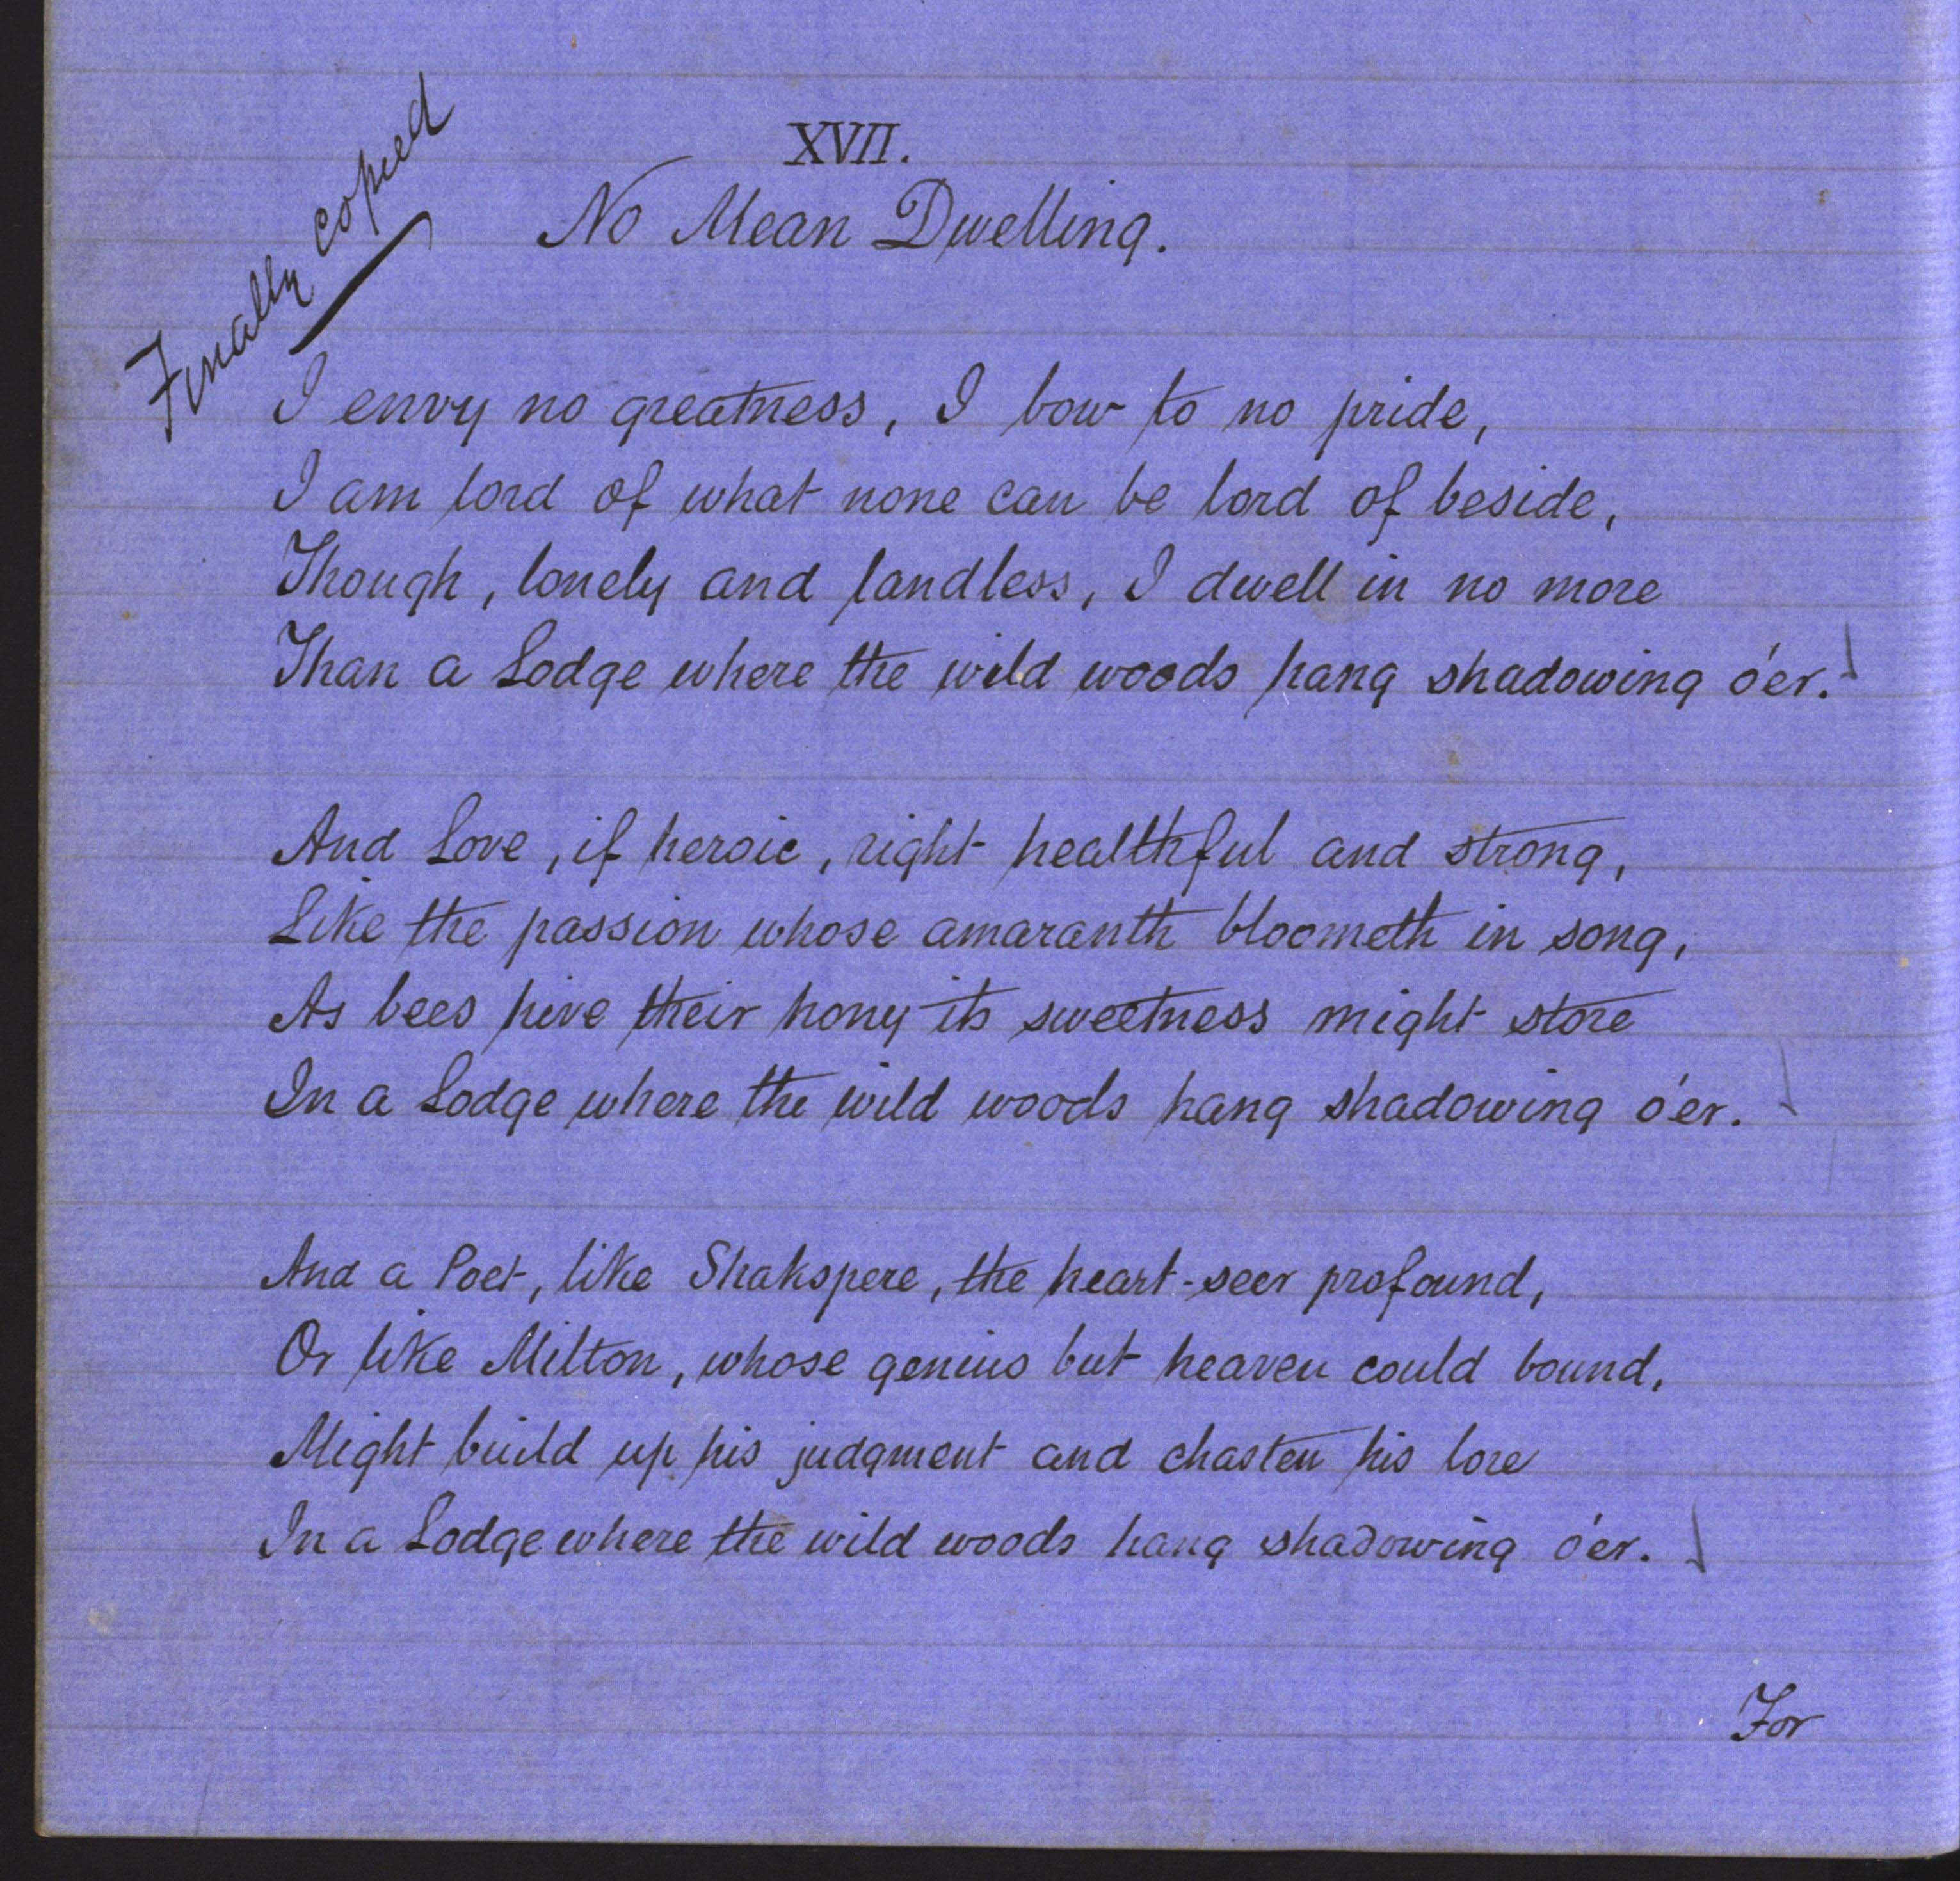 Finally copied
XVII.
No Mean Dwelling.
I envy no greatness, I bow to no pride,
I am lord of what none can be lord of beside,
Though, lonely and landless, I dwell in no more
Than a Lodge where the wild woods hang shadowing o'er.
And Love, if heroic, right healthful and strong,
Like the passion whose amaranth bloometh in song,
As bees hive their hony its sweetness might store
In a Lodge where the wild woods hang shadowing o'er.
And a Poet, like Shakspere, the heart-seer profound,
Or like Milton, whose genius but heaven could bound,
Might build up his judgment and chasten his lore
In a Lodge where the wild woods hang shadowing o'er.
For